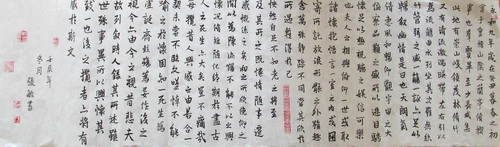 九年歲在癸丑暮春之初
事也羣賢畢至少長咸集
此地有崇山峻領茂林脩竹
又有清流激湍映帶左右引以
為流觴曲水列坐其次雖無絲竹
管弦之盛一觴一詠亦足以
暢敘幽情是日也天朗氣
清惠風和暢仰觀宇宙之大
俯察品類之盛所以遊目騁
懷足以極視聽之娛信可樂
也夫人之相與俯仰一世或取
諸懷抱悟言一室之內或因
寄所託放浪形骸之外雖趣
舍萬殊靜躁不同當其欣於
所遇暫得於己
快然自足不知老之將至
及其所之既惓情隨事遷
感慨係之矣向之所欣俛仰之
間以為陳迹猶不能不以之興
懷況脩短隨化終期於盡古
人云死生亦大矣豈不痛哉
每攬昔人興感之由若合一
契未嘗不臨文嗟悼不能喻
之於懷固知一死生為虛
誕齊彭殤為妄作後之
視今亦由今之視昔悲夫
故列敘時人錄其所述雖
世殊事異所以興懷其
致一也後之攬者亦將有
感於斯文
壬辰年
冬月
張敏書